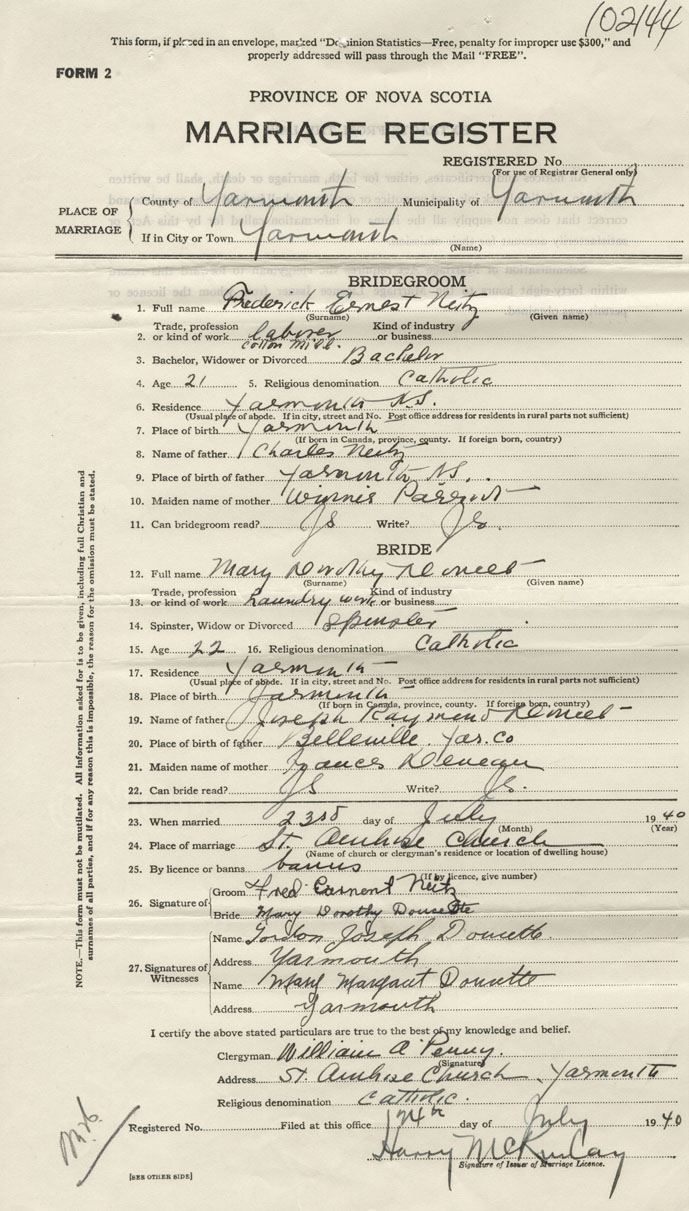 102144
This form, if placed in an envelope, marked "Dominion Statistics—Free, penalty for improper use $300," and
properly addressed will pass through the Mail "FREE".
FORM 2
PROVINCE OF NOVA SCOTIA
MARRIAGE REGISTER
REGISTERED No.
(For use of Registrar General only)
PLACE OF MARRIAGE
County of Yarmouth Municipality of Yarmouth
If in City or Town Yarmouth
(Name)
BRIDEGROOM
1. Full name Frederick Ernest Neitz
(Surname) (Given name)
2. Trade, profession or kind of work laborer cotton mill. Kind of industry or business
3. Bachelor, Widower or Divorced Bachelor
4. Age 21 5. Religious denomination Catholic
6. Residence Yarmouth N.S.
(Usual place of abode. If in city, street and No. Post office address for residents in rural parts not sufficient)
7. Place of birth Yarmouth
(If born in Canada, province, county. If foreign born, country)
8. Name of father Charles Neitz
9. Place of birth of father Yarmouth N.S.
10. Maiden name of mother
11. Can bridegroom read? Write?
BRIDE
12. Full name Mary Dorothy Doucet
(Surname) (Given name)
13. Trade, profession or kind of work Laundry work Kind of industry or business
14. Spinster, Widow or Divorced Spinster
15. Age 22 16. Religious denomination Catholic
17. Residence Yarmouth
(Usual place of abode. If in city, street and No. Post office address for residents in rural parts not sufficient)
18. Place of birth Yarmouth
(If born in Canada, province, county. If foreign born, country)
19. Name of father Joseph Raymond Doucet
20. Place of birth of father Belleville Yar. Co
21. Maiden name of mother Frances
22. Can bride read? Write?
23. When married 23rd day of July 1940
(Month) (Year)
24. Place of marriage St. Ambrose Church
(Name of church or clergyman's residence or location of dwelling house)
25. By licence or banns banns
(If by licence, give number)
26. Signature of
Groom Fred Neitz
Bride Mary Dorothy Doucette
27. Signatures of Witnesses
Name Gordon Joseph Doucette
Address Yarmouth
Name Mary Margaret Doucette
Address Yarmouth
I certify the above stated particulars are true to the best of my knowledge and belief.
Clergyman William A Penny.
(Signature)
Address St. Ambrose Church, Yarmouth
Religious denomination Catholic.
Registered No. Filed at this office 24th day of July 1940
Harry McKinlay
Signature of Issuer of Marriage Licence.
[SEE OTHER SIDE]
NOTE.—This form must not be mutilated. All information asked for is to be given, including full Christian and
surnames of all parties, and if for any reason this is impossible, the reason for the omission must be stated.